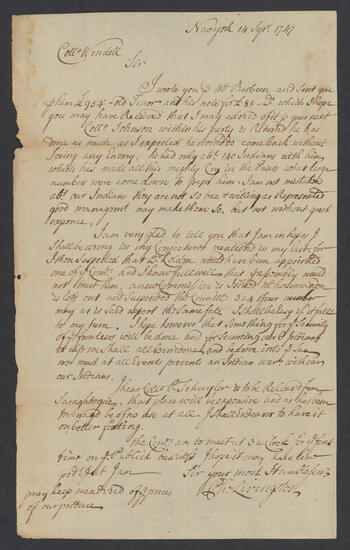 New york 14 Sepr. 1747
Collo Wendell
Sir
I wrote you p Mr Basteen and Sent you
p him £ 954 - Old Tenor and his note for £ 81 - Do which I hope
you may have Received that I may advised of it p your next
Collo Johnson with his party is Returnd he has
done as much as I expected he should to come back without
Seeing any Enemy, he had only abt 140 Indians with him
which has made all this mighty Cry in the Prints what large
number were come down to Joyn him, I am not mistaken
abt our Indians they are not So true & willing as Represented
good managmt may make them So, but not without great
expence
I am very glad to tell you that I am in hopes I
Shall be wrong in my Conjectures mentiond in my last, for
I then Suspected that Dr Colden would have been appointed
one of ye Comrs and I knew full well that ye assembly would
not trust him, a new Commission is Issued is
left out and Suspended the Councill 3 or 4 of our number
may as is said expect the same fate I shall be easy if it fall
to my turn. I hope however that Something for ye Security
of ye frontiers will be done and for Securing our Indians
or else we Shall all be undone and be drove into ye Sea
we must at all Events prevent an Indian warr with
our Indians.
I hear Collo P: Schuyler is to be Received from
Saraghtogue, that place will be expensive and as has been
managd be of no use at all. I shall Endeavr to have it
on better footing.
The Comrs are to meet at 3 a Clock for ye first
time on ye Publick I hope it may take time
good Effect I am Sir your most Humble Servt
Ph: Livingston
pray keep me advised of ye prices
of our produce